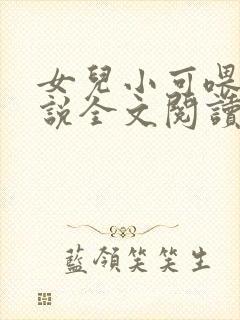 女兒小可喂
説全文閱讀
藍領笑笑生